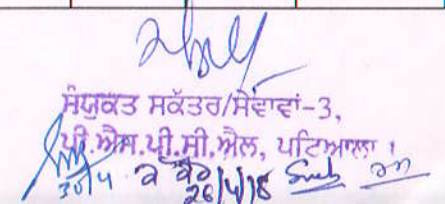 ਸੰਯੁਕਤ ਸਕੱਤਰ/ਸੇਵਾਵਾਂ-3,
ਪੀ.ਐਸ.ਪੀ.ਸੀ.ਐਲ, ਪਟਿਆਲਾ ।
30/4 26/4/18